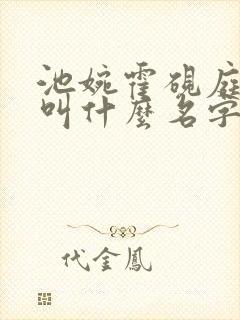 池婉霍砚庭
叫什麼名字
代金鳳